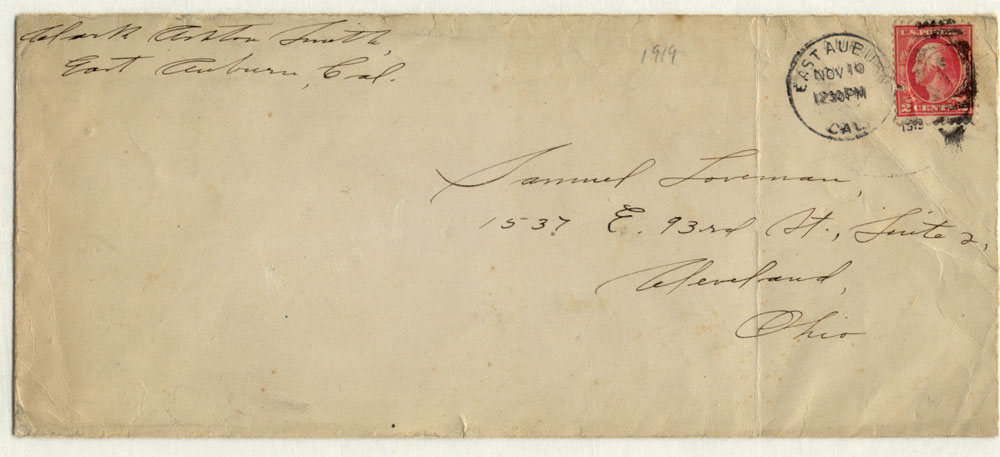 Clark Ashton Smith,
East Auburn, Cal.
1919
EAST AUBURN
NOV 10
1230PM
CAL.
1919
U.S. POSTAGE
2 CENTS 2
Samuel Loveman,
1537 E. 93rd St., Suite 2,
Cleveland,
Ohio